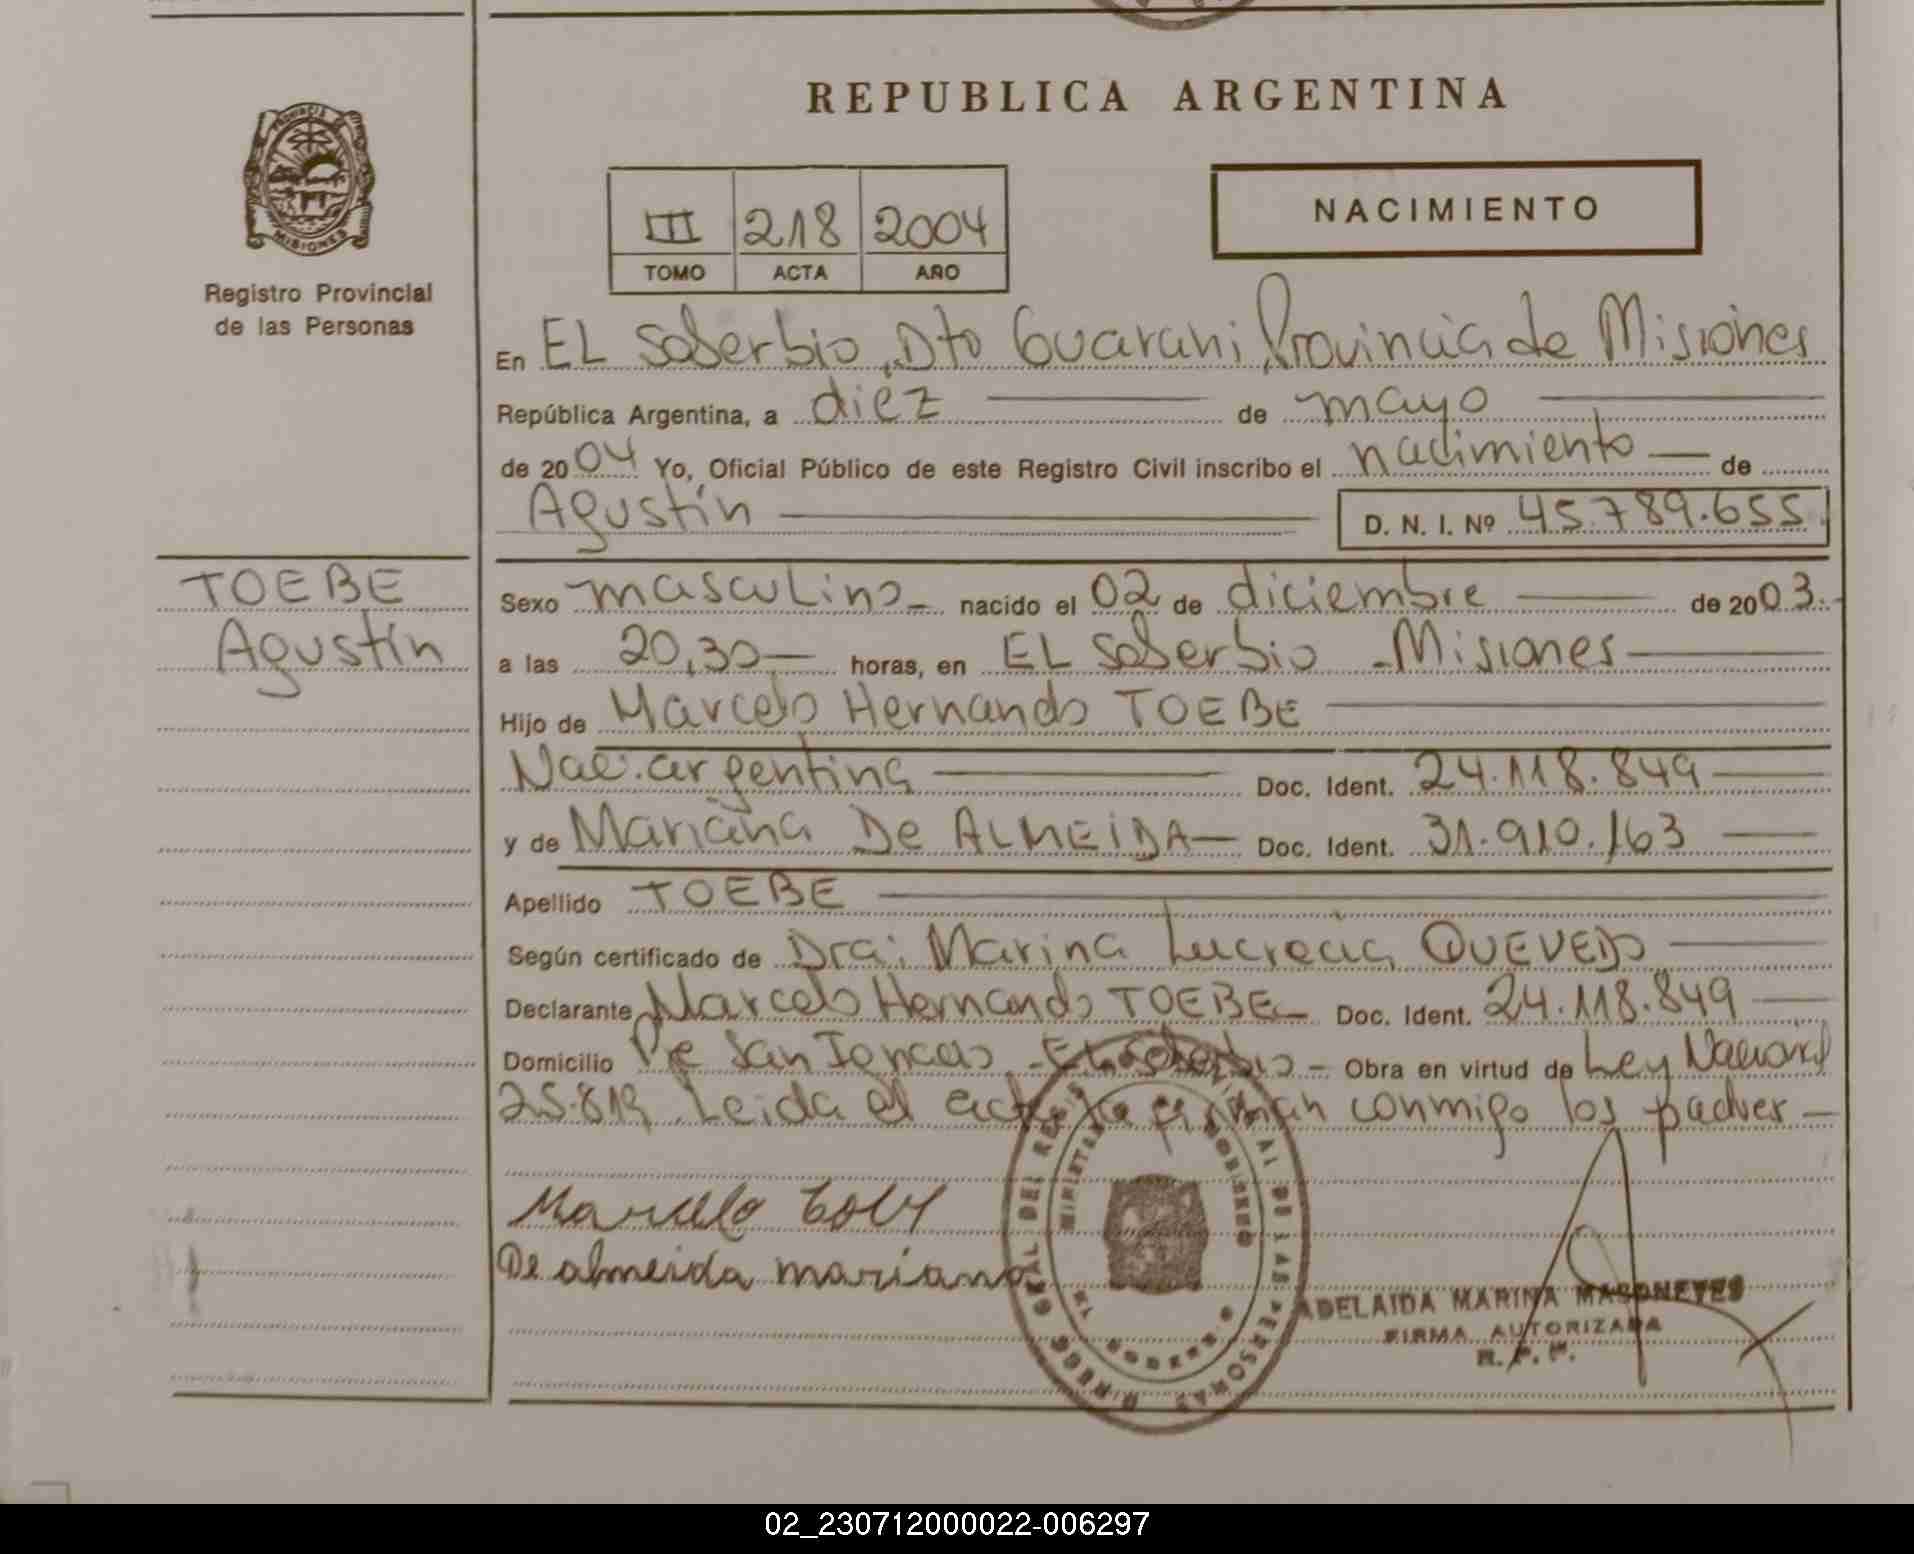 REPUBLICA ARGENTINA
PROVINCIA DE MISIONES
Registro Provincial
de las Personas
III 218 2004
TOMO ACTA AÑO
NACIMIENTO
En EL Soberbio, Dto Guarani Provincia de Misiones
República Argentina, a diez de mayo
de 2004 Yo, Oficial Público de este Registro Civil inscribo el nacimiento de
Agustín D. N. I. Nº 45.789.655.
TOEBE
Agustín
Sexo masculino nacido el 02 de diciembre de 2003.
a las 20,30 horas, en EL Soberbio - Misiones
Hijo de Marcelo Hernando TOEBE
Nac. argentina Doc. Ident. 24.118.849
y de Mariana De ALMEIDA Doc. Ident. 31.910.163
Apellido TOEBE
Según certificado de Dra: Marina Lucrecia QUEVEDO
Declarante Marcelo Hernando TOEBE Doc. Ident. 24.118.849
Domicilio San - El Soberbio - Obra en virtud de Ley Nacional
25.819. Leida el acta la firman conmigo los padres
Marcelo
De almeida mariana
ADELAIDA MARINA
FIRMA AUTORIZADA
R. P. P.
02_230712000022-006297